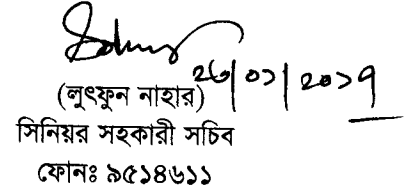 ২৬/০১/২০১৭
(লুৎফুন নাহার)
সিনিয়র সহকারী সচিব
ফোনঃ ৯৫১৪৬১১